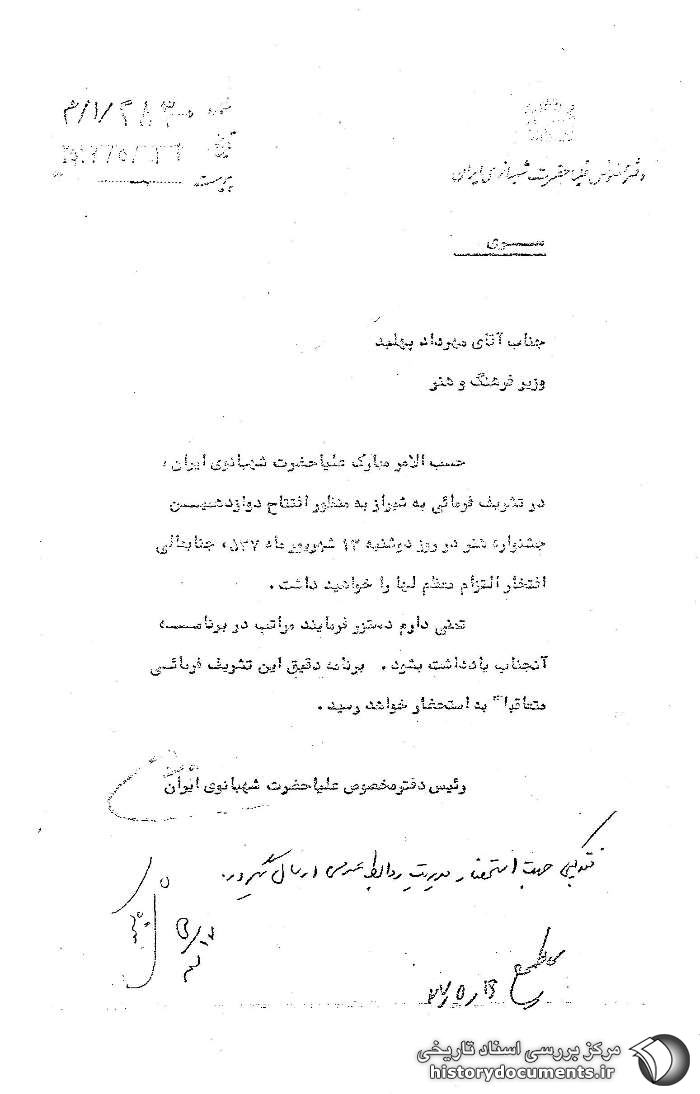 شماره
تاریخ
پیوست
دفتر مخصوص علیاحضرت شهبانوی ایران
ســـری
جناب آقای مهرداد پهلبد
وزیر فرهنگ و هنر
حسب الامر مبارک علیاحضرت شهبانوی ایران ،
در تشریف فرمائی به شیراز به منظور افتتاح دوازدهمیــن
جشنواره هنر در روز دوشنبه ۱۳ شهریور ماه ۵۳۷، جنابعالی
افتخار التزام معظم لها را خواهید داشت .
تمنی دارم دستور فرمایند مراتب در برنامــه
آنجناب یادداشت بشود . برنامه دقیق این تشریف فرمائــی
متعاقباً به استحضار خواهد رسید .
رئیس دفتر مخصوص علیاحضرت شهبانوی ایران
جهت استحضار مدیریت روابط عمومی ارسال میگردد.
مرکز بررسی اسناد تاریخی
historydocuments.ir